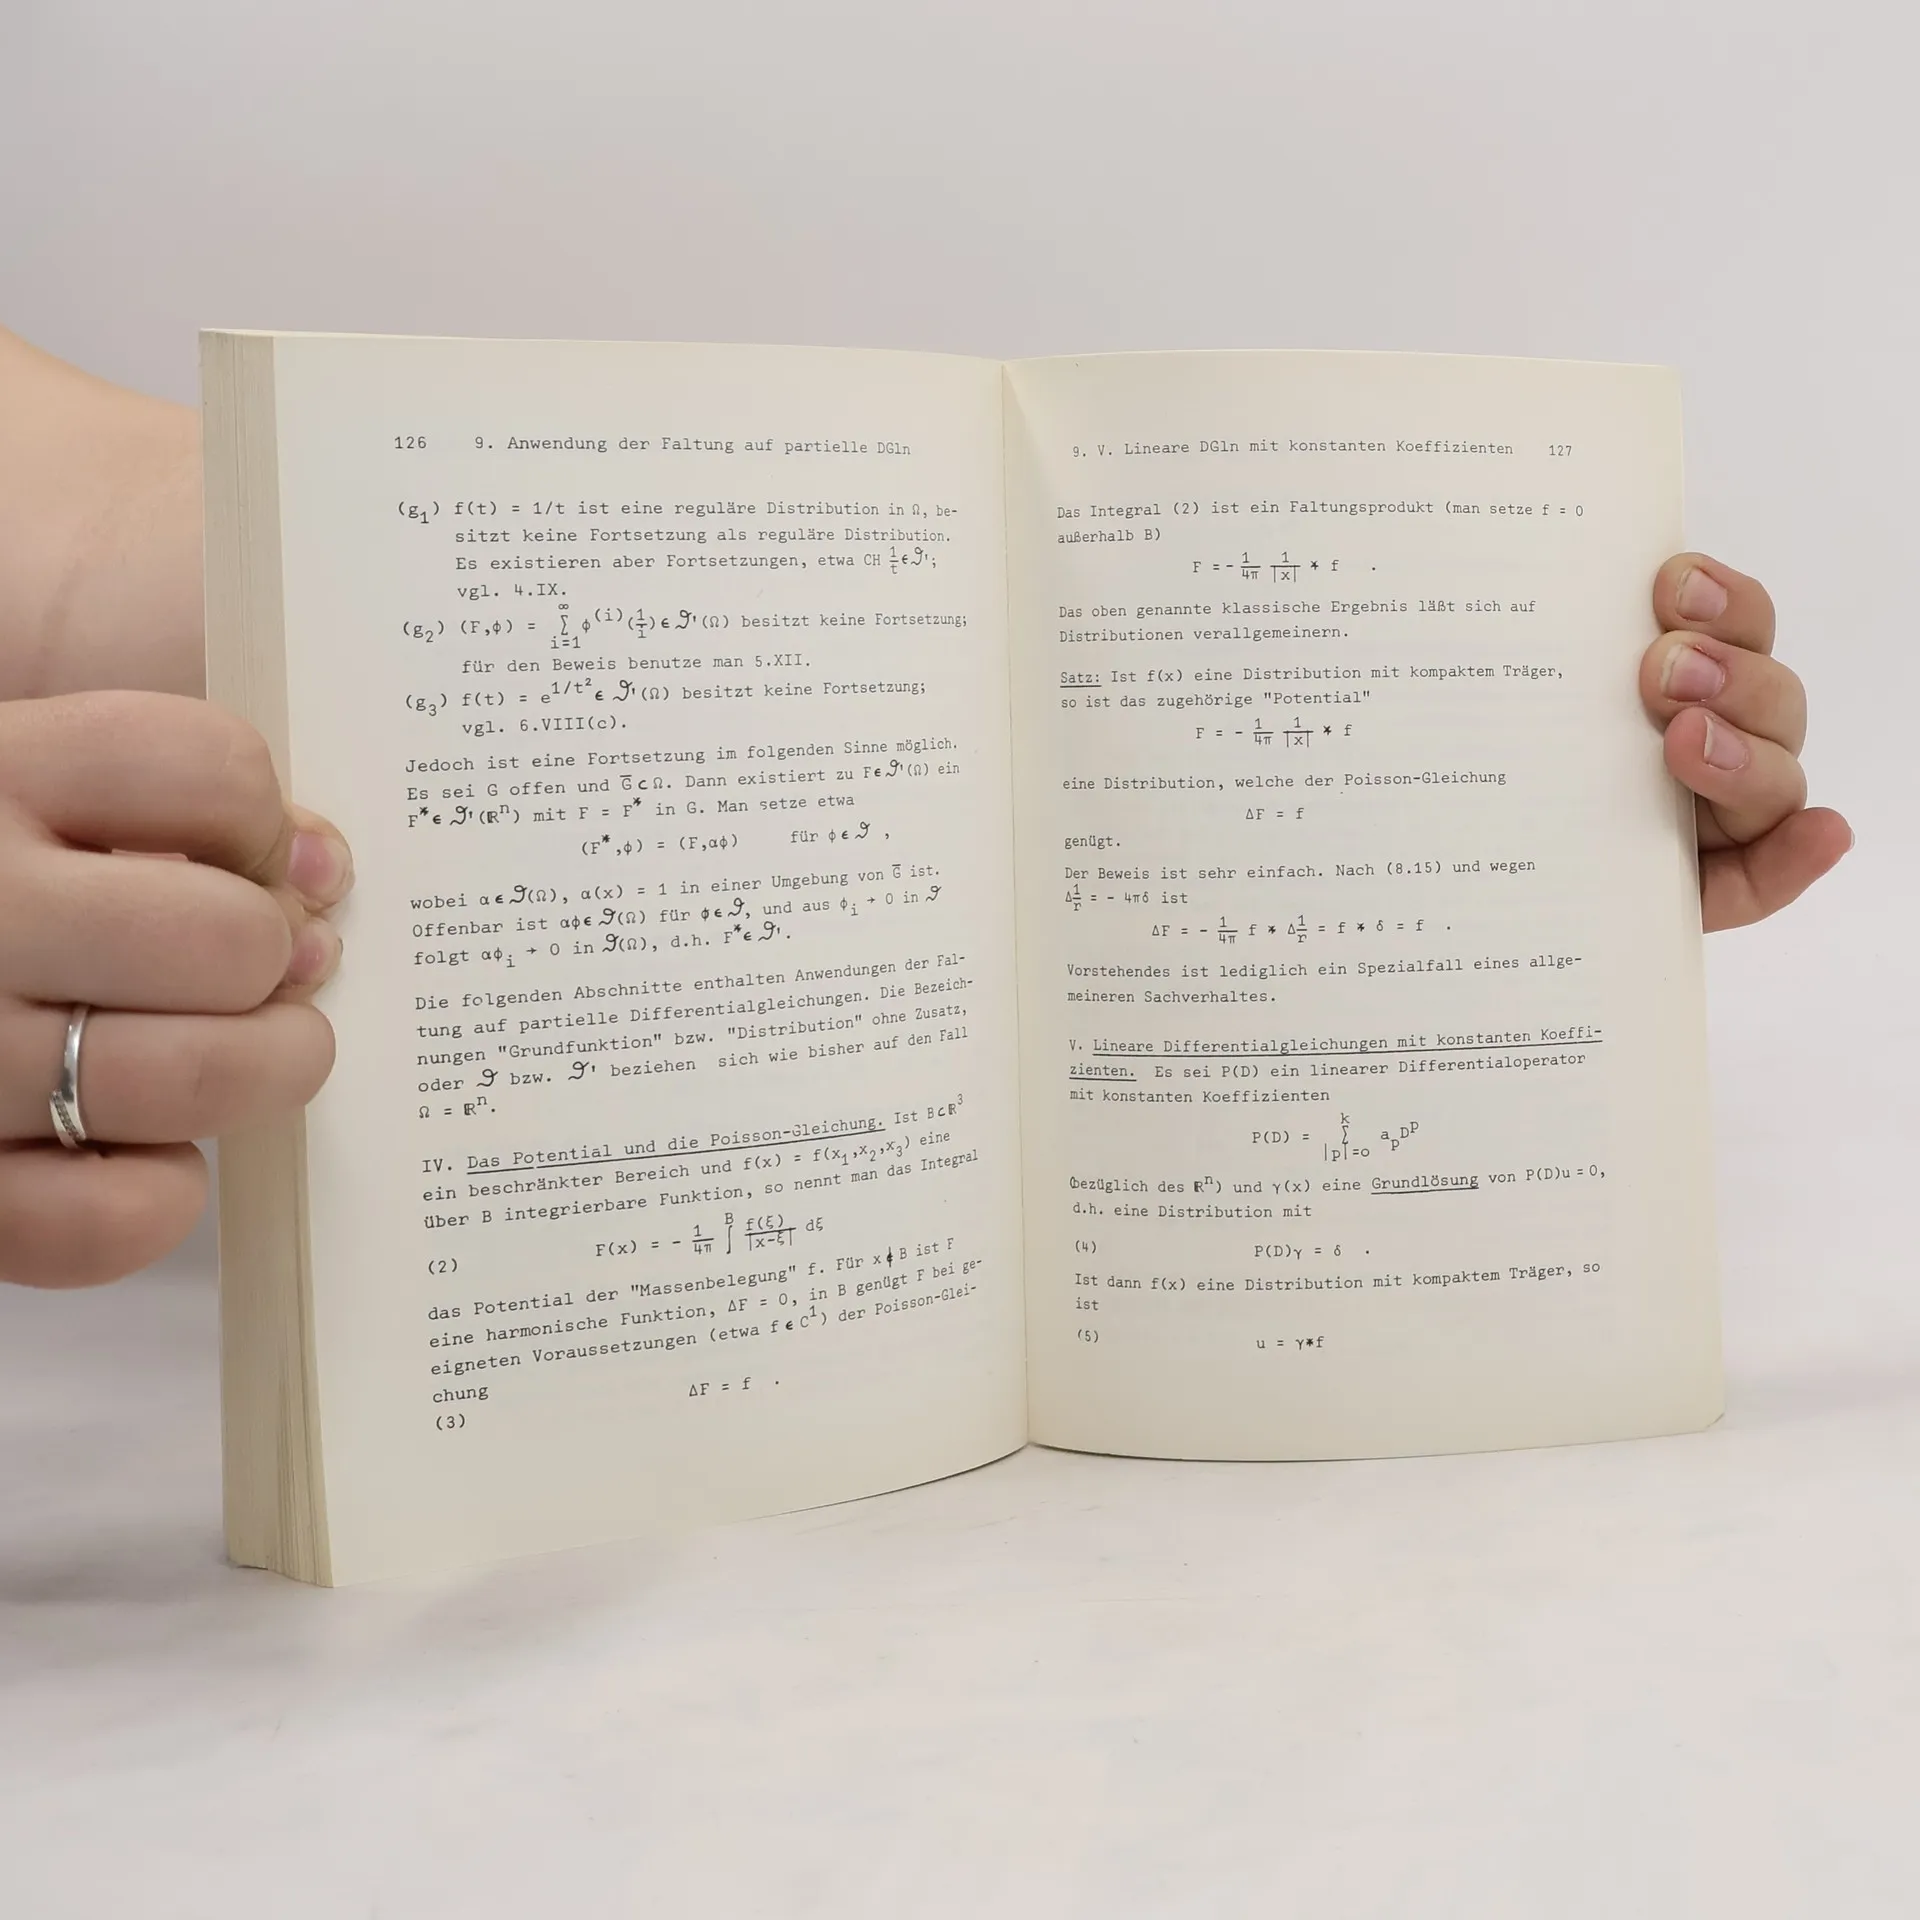 126 9. Anwendung der Faltung auf partielle DGln
(g₁) f(t) = 1/t ist eine reguläre Distribution in Ω, be-
sitzt keine Fortsetzung als reguläre Distribution.
Es existieren aber Fortsetzungen, etwa CH 1/t ϵ 𝒟';
vgl. 4.IX.
(g₂) (F,ϕ) = ∑_{i=1}^{∞} ϕ^(i)(1/i) ϵ 𝒟'(Ω) besitzt keine Fortsetzung;
für den Beweis benutze man 5.XII.
(g₃) f(t) = e^{1/t²} ϵ 𝒟'(Ω) besitzt keine Fortsetzung;
vgl. 6.VIII(c).
Jedoch ist eine Fortsetzung im folgenden Sinne möglich.
Es sei G offen und G̅ ⊂ Ω. Dann existiert zu F ϵ 𝒟'(Ω) ein
F* ϵ 𝒟'(ℝⁿ) mit F = F* in G. Man setze etwa
(F*,ϕ) = (F,αϕ) für ϕ ϵ 𝒟 ,
wobei α ϵ 𝒟(Ω), α(x) = 1 in einer Umgebung von G̅ ist.
Offenbar ist αϕ ϵ 𝒟(Ω) für ϕ ϵ 𝒟, und aus ϕᵢ → 0 in 𝒟
folgt αϕᵢ → 0 in 𝒟(Ω), d.h. F* ϵ 𝒟'.
Die folgenden Abschnitte enthalten Anwendungen der Fal-
tung auf partielle Differentialgleichungen. Die Bezeich-
nungen "Grundfunktion" bzw. "Distribution" ohne Zusatz,
oder 𝒟 bzw. 𝒟' beziehen sich wie bisher auf den Fall
Ω = ℝⁿ.
IV. Das Potential und die Poisson-Gleichung. Ist B⊂ℝ³
ein beschränkter Bereich und f(x) = f(x₁,x₂,x₃) eine
über B integrierbare Funktion, so nennt man das Integral
(2) F(x) = - 1/4π ∫^B f(ξ)/|x-ξ| dξ
das Potential der "Massenbelegung" f. Für x ∉ B ist F
eine harmonische Funktion, ΔF = 0, in B genügt F bei ge-
eigneten Voraussetzungen (etwa f ϵ C¹) der Poisson-Glei-
chung
(3) ΔF = f .
9. V. Lineare DGln mit konstanten Koeffizienten 127
Das Integral (2) ist ein Faltungsprodukt (man setze f = 0
außerhalb B)
F = - 1/4π 1/|x| * f .
Das oben genannte klassische Ergebnis läßt sich auf
Distributionen verallgemeinern.
Satz: Ist f(x) eine Distribution mit kompaktem Träger,
so ist das zugehörige "Potential"
F = - 1/4π 1/|x| * f
eine Distribution, welche der Poisson-Gleichung
ΔF = f
genügt.
Der Beweis ist sehr einfach. Nach (8.15) und wegen
Δ1/r = - 4πδ ist
ΔF = - 1/4π f * Δ1/r = f * δ = f .
Vorstehendes ist lediglich ein Spezialfall eines allge-
meineren Sachverhaltes.
V. Lineare Differentialgleichungen mit konstanten Koeffi-
zienten. Es sei P(D) ein linearer Differentialoperator
mit konstanten Koeffizienten
P(D) = ∑_{|p|=o}^{k} aₚDᵖ
(bezüglich des ℝⁿ) und γ(x) eine Grundlösung von P(D)u = 0,
d.h. eine Distribution mit
(4) P(D)γ = δ .
Ist dann f(x) eine Distribution mit kompaktem Träger, so
ist
(5) u = γ*f